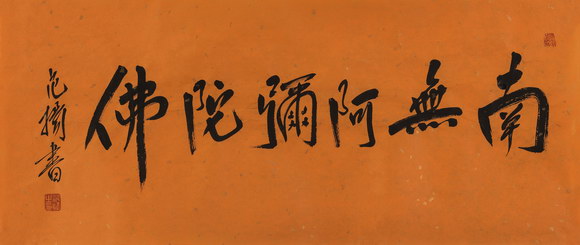 南無阿彌陀佛
范揚書